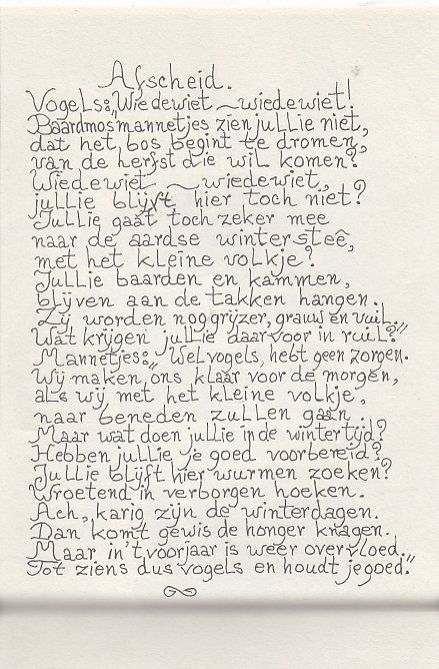 Afscheid.
Vogels: „Wiedewiet ~ wiedewiet!
Baardmosmannetjes zien jullie niet,
dat het bos begint te dromen,
van de herfst die wil komen?
Wiedewiet ~ wiedewiet,
jullie blijft hier toch niet?
Jullie gaat toch zeker mee
naar de aardse winterstee,
met het kleine volkje?
Jullie baarden en kammen,
blijven aan de takken hangen.
Zij worden nog grijzer, grauw en vuil.
Wat krijgen jullie daarvoor in ruil?”
Mannetjes: „Wel vogels, hebt geen zorgen.
Wij maken ons klaar voor de morgen,
als wij met het kleine volkje,
naar beneden zullen gaan.
Maar wat doen jullie in de wintertijd?
Hebben jullie je goed voorbereid?
Jullie blijft hier wurmen zoeken?
Wroetend in verborgen hoeken.
Ach, karig zijn de winterdagen.
Dan komt gewis de honger knagen.
Maar in 't voorjaar is weer overvloed.
Tot ziens dus vogels en houdt je goed.”